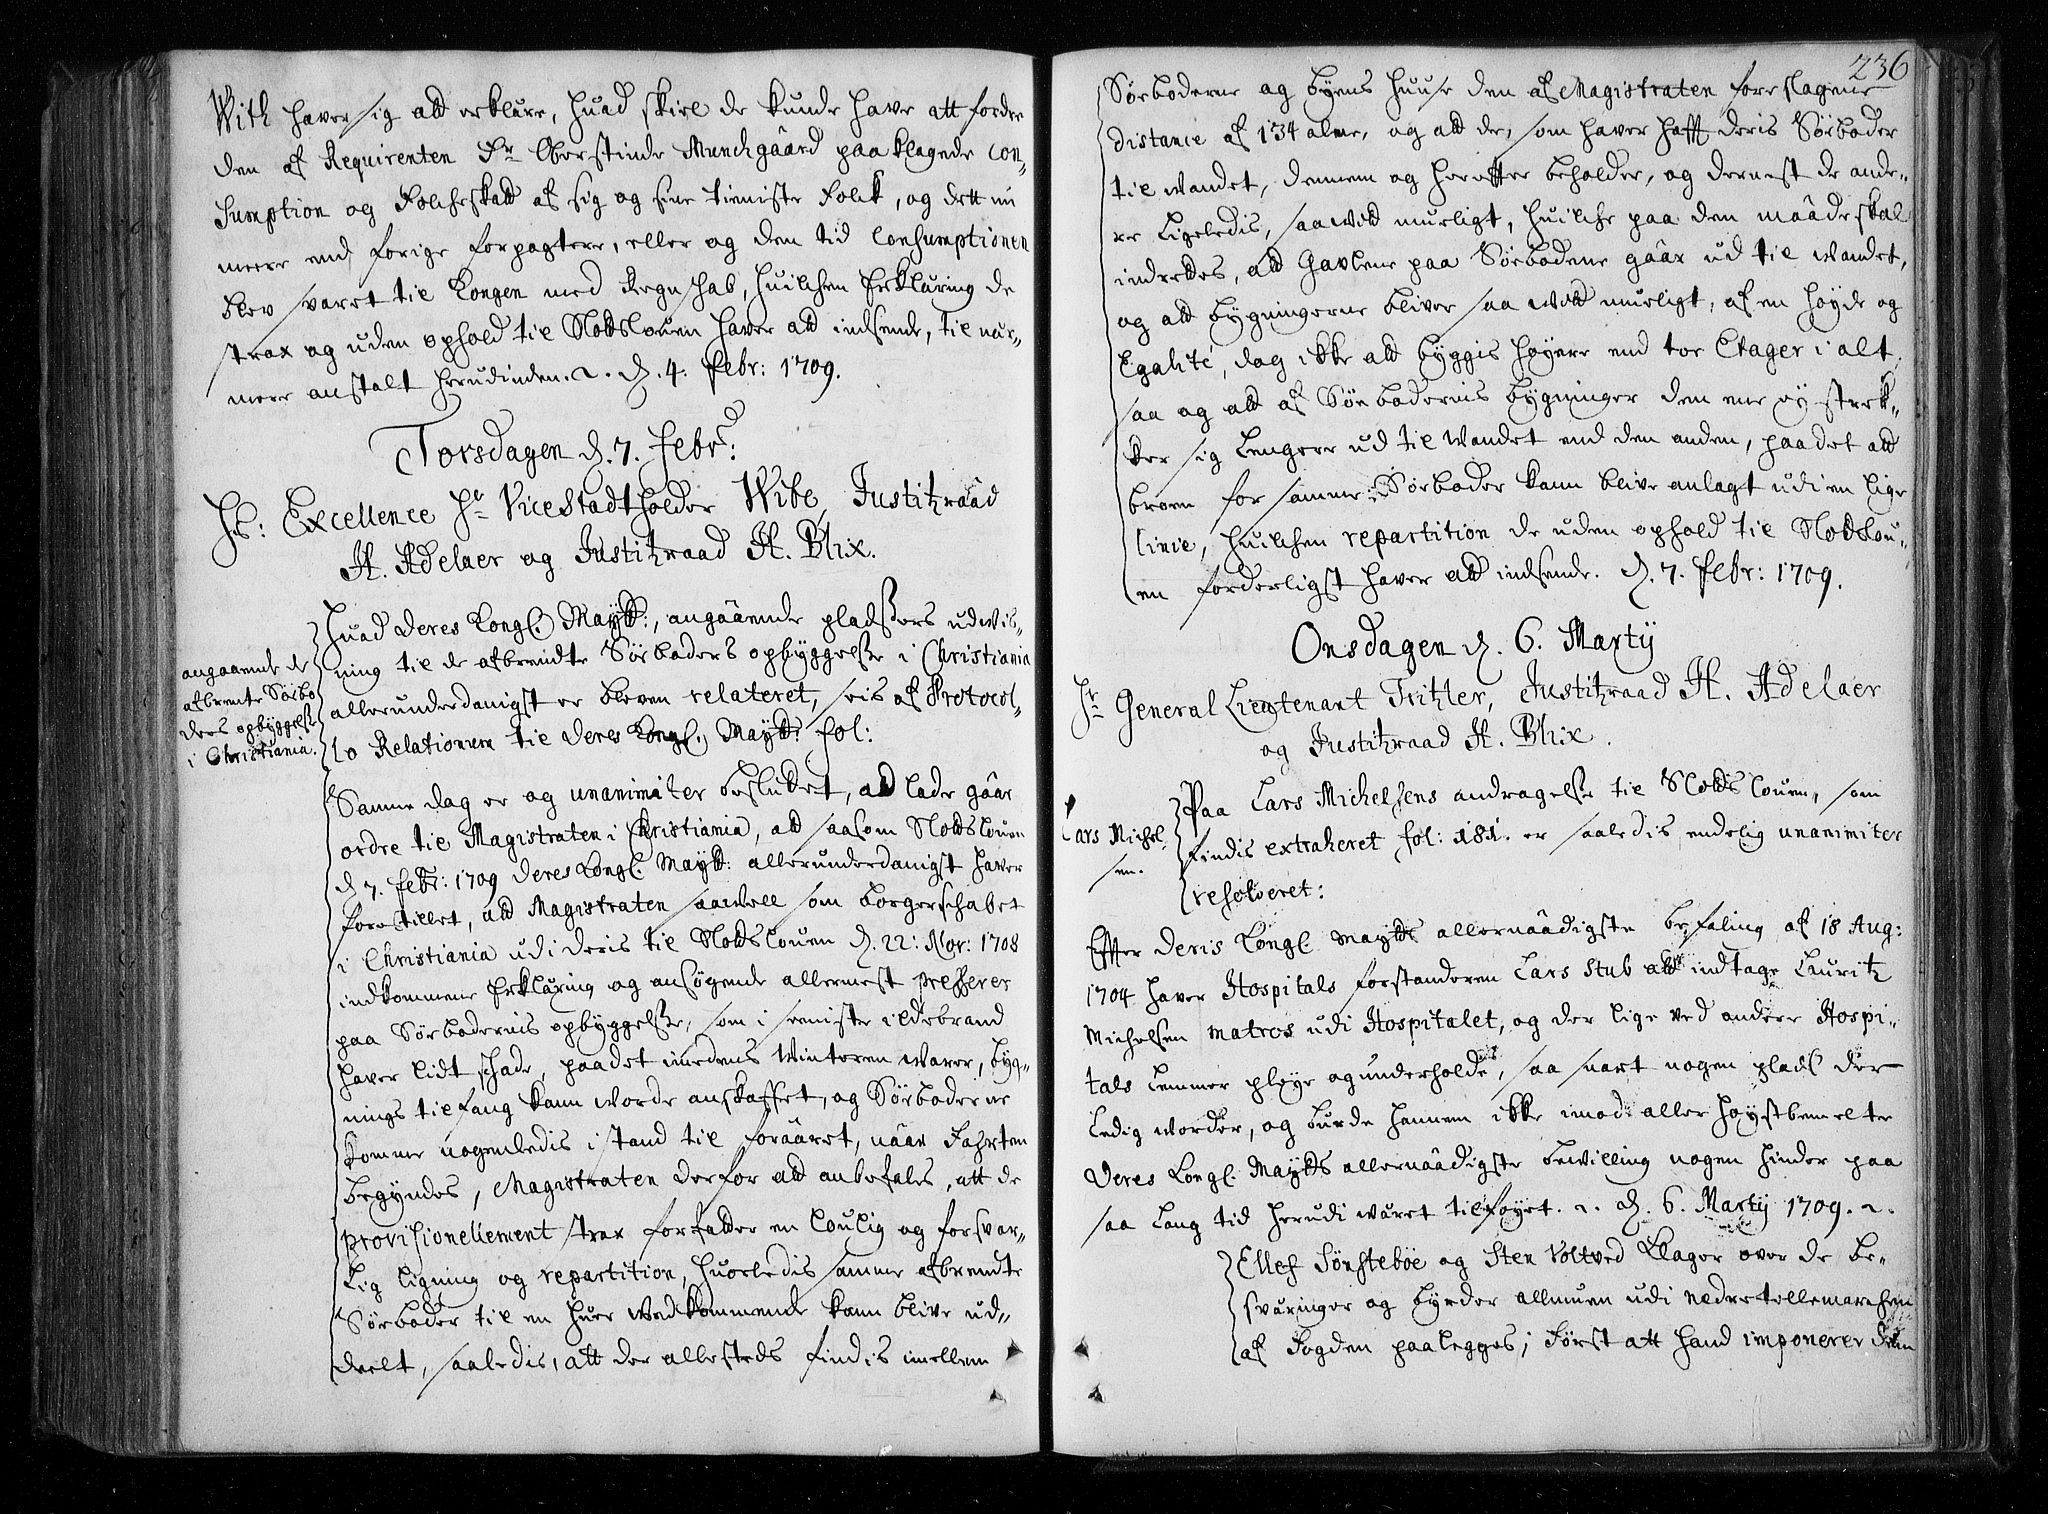 With haver sig att erklære, huad skiel de kunde have att fordre
den af Requirenten Fr. Oberstinde Munchgaard paaklagede con-
sumption og Folcheskatt af sig og sine tieniste Folck, og dett nu
meere end forige forpagtere, eller og den tid Consumptionen
blev svaret til Kongen med Regnschab, huilchen Erklæring de
strax og uden ophold til Slotzlouen haver att indsende, til nær-
mere anstalt herudinden. d. 4. Febr: 1709.
Torsdagen d. 7. Febr:
Hs: Excellence Hr ViceStadtholder Wibe, Justitzraad
H. Adelaer og Justitzraad H. Blix.
angaaende de
afbrente Søebo
ders opbyggelse
i Christiania.
Huad Deres Kongl. Maytt:, angaaende pladsers udwis-
ning til de afbrendte Søeboders opbyggelse i Christiania
allerunderdanigst er bleven relateret, sees af Protocol-
lo Relationum til Deres Kongl. Maytt: fol:
Samme dag er og unanimiter besluttet, att lade gaae
ordre til Magistraten i Christiania, att saasom Slottslouen
d. 7. Febr: 1709 Deres Kongl. Maytt: allerunderdanigst haver
forestillet, att Magistraten saavell som borgerschabet
i Christiania udi deris til Slottslouen d. 22: Nov: 1708
indkommene Erklæring og ansøgende allermest presserer
paa Søebodernis opbyggelse, som i seeniste ildebrand
haver lidt schade, paadet imedens Winteren warer, byg-
nings tilfang kann worde anskaffet, og Søeboderne
komme nogenledis i stand til foraaret, naar Fahrten
begyndes, Magistraten derfor att anbefales, att de
provisionellement strax forfatter en louglig og forsvar-
lig ligning og repartition, huorledis samme afbrendte
Søeboder til en huer wedkommende kann blive ud-
deelt, saaledis, att der allesteds findis imellem
236
Søeboderne og byens huuse den af Magistraten foreslagene
distance af 134 alne, og att de, som haver hafft deris Søeboder
til wandet, dennem og herefter beholder, og dernest de ande-
re ligeledis, saa wit mueligt, huilche paa den maade skal
indrettes, att Gavlene paa Søeboderne gaar ud til wandet,
og att bygningerne bliver saa witt mueligt, af en høyde og
Egalité, dog ikke att byggis høyere end toe Etager i alt,
saa og att af Søebodernis bygninger den ene ey stræk-
ker sig lengere ud til wandet end den anden, paadet att
broen for samme Søeboder kann blive anlagt udi en lige
linie, huilchen repartition de uden ophold til Slottslou-
en forderligst haver att indsende. d. 7. Febr: 1709.
Onsdagen d. 6. Marty
Hr General Lieutenant Tritzler, Justitzraad H. Adelaer
og Justitzraad H. Blix.
Lars Michel
sen.
Paa Lars Michelsens andragelse til Slottslouen, som
findis extraheret fol: 181. er saaledis endelig unanimiter
resolveret:
Effter Deris Kongl. Maytts allernaadigste befaling af 18 Aug:
1704 haver Hospitals forstanderen Lars Stub att indtage Lauritz
Michelsen Matros udi Hospitalet, og der lige ved andere Hospi-
tals Lemmer pleye og underholde, saa snart nogen plads der
ledig worder, og burde hannem ikke imod allerhøystbemelte
Deres Kongl. Maytts allernaadigste bewilling nogen hinder paa
saa lang tid herudi wæret tilføyet. d. 6. Marty 1709.
Ellef Sønsteböe og Sten Voltved klager over de be-
sværinger og byrder allmuen udi Nedretellemarchen
af Fogden paalegges; Først att hand imponerer dem